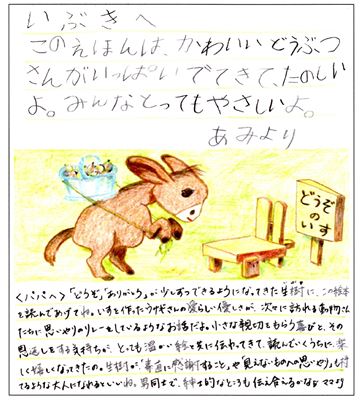 いぶきへ
このえほんは、かわいいどうぶつ
さんがいっぱいでてきて、たのしい
よ。みんなとってもやさしいよ。
あみより
どうぞ
の
いす
〈パパへ〉「どうぞ」「ありがとう」が少しずつできるようになってきた生樹に、この絵本
を読んであげてね。いすを作ったうさぎさんの愛らしい優しさが、次々に訪れる動物さん
たちに思いやりのリレーをしているようなお話だよ。小さな親切をもらう喜びと、その
恩返しをする気持ちが、とっても温かい絵と共に伝わってきて、読んでいくうちに、楽し
く嬉しくなってきたの。生樹が「素直に感謝すること」や「見えないものへの思いやり」も持
てるような大人になれるといいね。男同士で、紳士的なところも伝え合うかな？ ママより